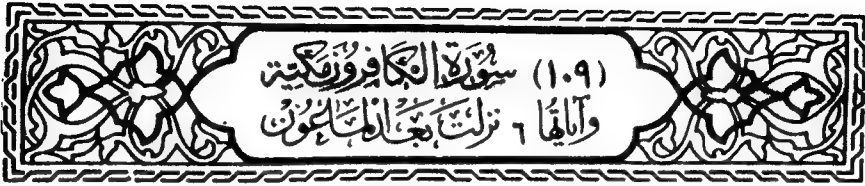 (١٠٩) سُورَةُ الْكَافِرُونَ مَكِّيَّة
وَآيَاتُهَا ٦ نَزَلَتْ بَعْدَ الْمَاعُونِ